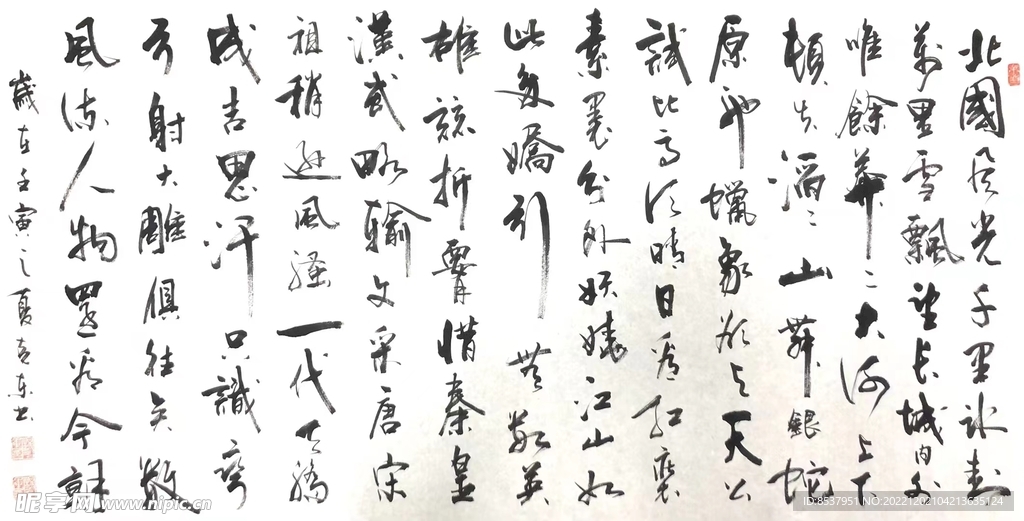 北國风光千里冰封
萬里雪飄望长城内外
唯餘莽〻大河上下
頓失滔〻山舞銀蛇
原馳蠟象欲与天公
試比高须晴日看红裝
素裹分外妖嬈江山如
此多嬌引无數英
雄競折腰惜秦皇
漢武略輸文采唐宋
祖稍逊風騷一代天驕
成吉思汗只識彎
弓射大雕俱往矣數
風流人物還看今朝
歲在壬寅之夏吉东书
昵享网 www.nipic.cn
ID:8537951 NO:20221202104213635124